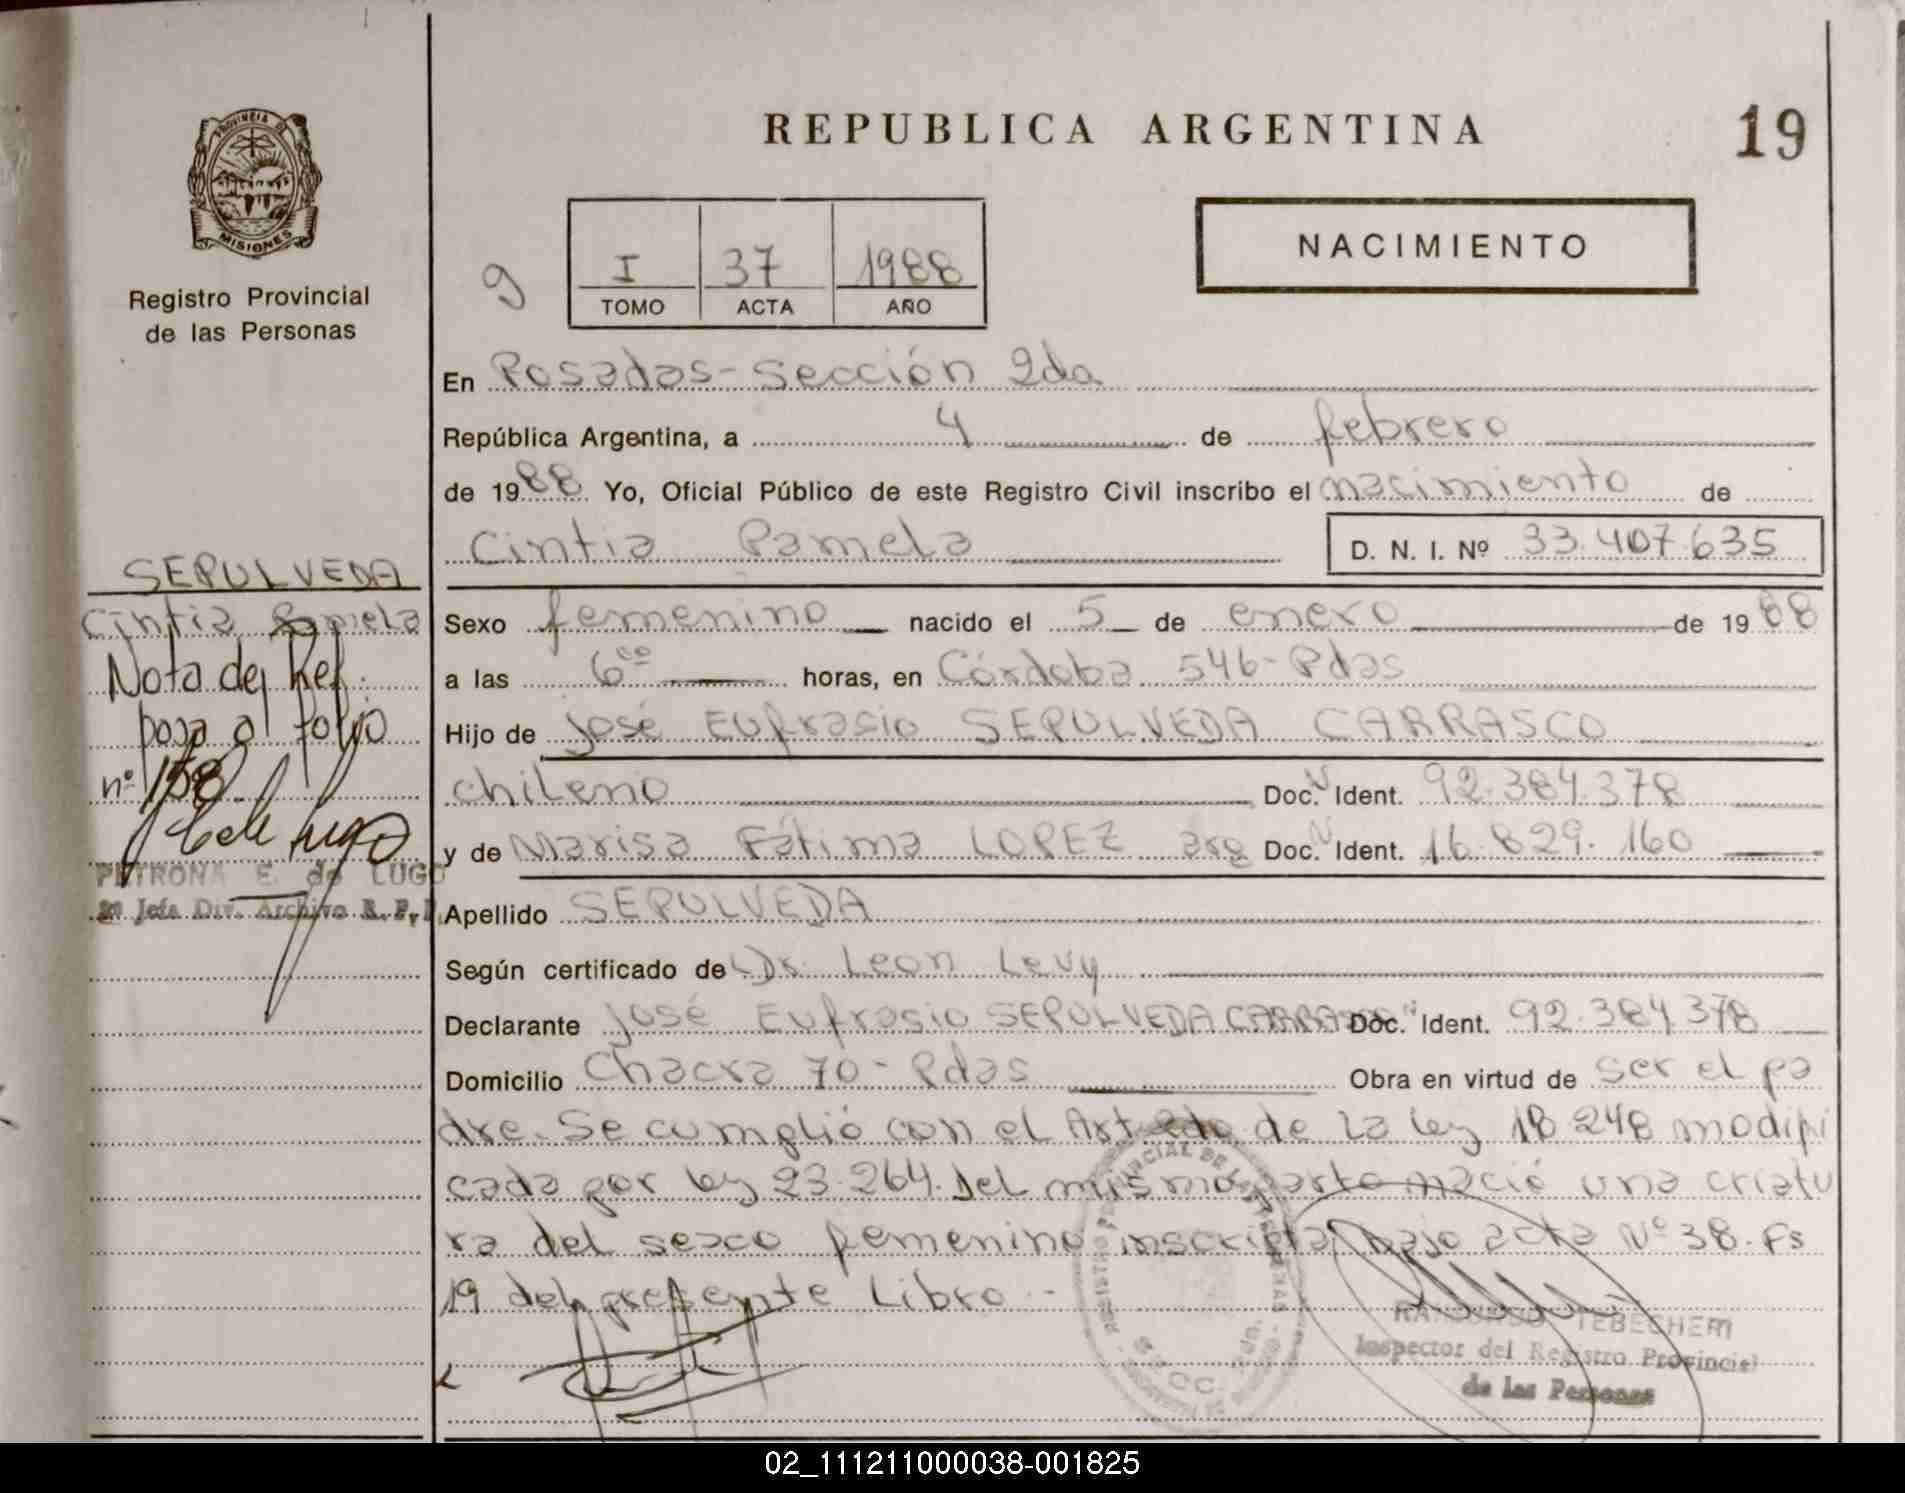 PROVINCIA DE
MISIONES
Registro Provincial
de las Personas
REPUBLICA ARGENTINA
19
9
I 37 1988
TOMO ACTA AÑO
NACIMIENTO
En Posadas-Sección 2da
República Argentina, a 4 de febrero
de 1988 Yo, Oficial Público de este Registro Civil inscribo el nacimiento de
Cintia Pamela D. N. I. Nº 33.407.635
SEPULVEDA
Cintia Pamela
Nota de Ref.
pasa al folio
nº 158
PETRONA E. de LUGO
Jefa Div. Archivo R. P. P.
Sexo femenino nacido el 5 de enero de 1988
a las 6 horas, en Córdoba 546-Pdas
Hijo de José Eufrasio SEPULVEDA CARRASCO
chileno Doc. N Ident. 92.384.378
y de Marisa Fátima LOPEZ arg Doc. N Ident. 16.829.160
Apellido SEPULVEDA
Según certificado de Dr. Leon Levy
Declarante José Eufrasio SEPULVEDA CARRASCO Doc. N Ident. 92.384.378
Domicilio Chacra 70-Pdas Obra en virtud de ser el pa
dre. Se cumplió con el Art 2do de la ley 18.248 modifi
cada por ley 23.264. Del mismo parto nació una criatu
ra del sexo femenino inscripta bajo acta Nº 38. Fs
19 del presente Libro.-
TEBECHERI
Inspector del Registro Provincial
de las Personas
02_111211000038-001825